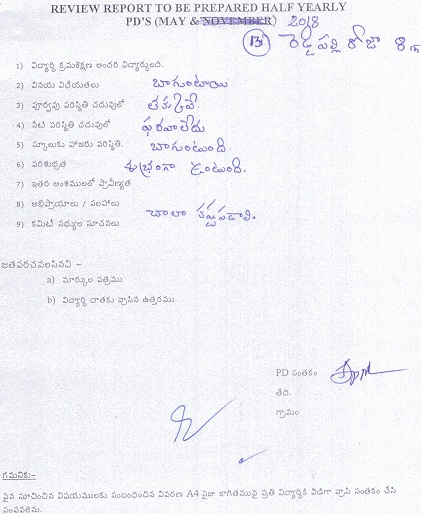 REVIEW REPORT TO BE PREPARED HALF YEARLY
PD'S (MAY & NOVEMBER) 2018
13) రెడ్డిపల్లి రోజా 8th
1) విద్యార్థి క్రమశిక్షణ అందరి విద్యార్థులది.
2) వినయ విధేయతలు బాగుంటాయి
3) పూర్వపు పరిస్థితి చదువులో తక్కువే.
4) నేటి పరిస్థితి చదువులో పరవాలేదు
5) స్కూలుకు హాజరు పరిస్థితి. బాగుంటుంది.
6) పరిశుభ్రత శుభ్రంగా ఉంటుంది.
7) ఇతర అంశములలో ప్రావీణ్యత
8) అభిప్రాయాలు / సలహాలు చాలా కష్టపడాలి.
9) కమిటీ సభ్యుల సూచనలు
జతపరచవలసినవి –
a) మార్కుల పత్రము
b) విద్యార్థి దాతకు వ్రాసిన ఉత్తరము
PD సంతకం
తేది.
గ్రామం
గమనిక:–
పైన సూచించిన విషయములకు సంబంధించిన వివరణ A4 సైజు కాగితముపై ప్రతి విద్యార్థికి విడిగా వ్రాసి సంతకం చేసి
పంపవలెను.